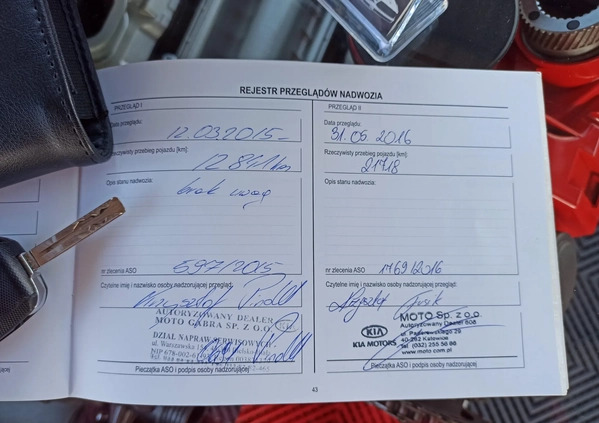 REJESTR PRZEGLĄDÓW NADWOZIA
PRZEGLĄD I
Data przeglądu:
12.03.2015-
Rzeczywisty przebieg pojazdu [km]:
12841 km
Opis stanu nadwozia:
brak uwag
nr zlecenia ASO
597/2015
Czytelne imię i nazwisko osoby nadzorującej przegląd:
Krzysztof
AUTORYZOWANY DEALER
MOTO GABRA SP. Z O.O.
DZIAŁ NAPRAW SERWISOWYCH
ul. Warszawska
NIP 678-002-
Pieczątka ASO i podpis osoby nadzorującej
PRZEGLĄD II
Data przeglądu:
31.05.2016
Rzeczywisty przebieg pojazdu [km]:
21718
Opis stanu nadwozia:
nr zlecenia ASO
1769/2016
Czytelne imię i nazwisko osoby nadzorującej przegląd:
Krzysztof
KIA
KIA MOTORS
MOTO Sp. z o.o.
Autoryzowany Dealer 608
40-282 Katowice
tel (032) 255 56 86
www.moto.com.pl
Pieczątka ASO i podpis osoby nadzorującej
43